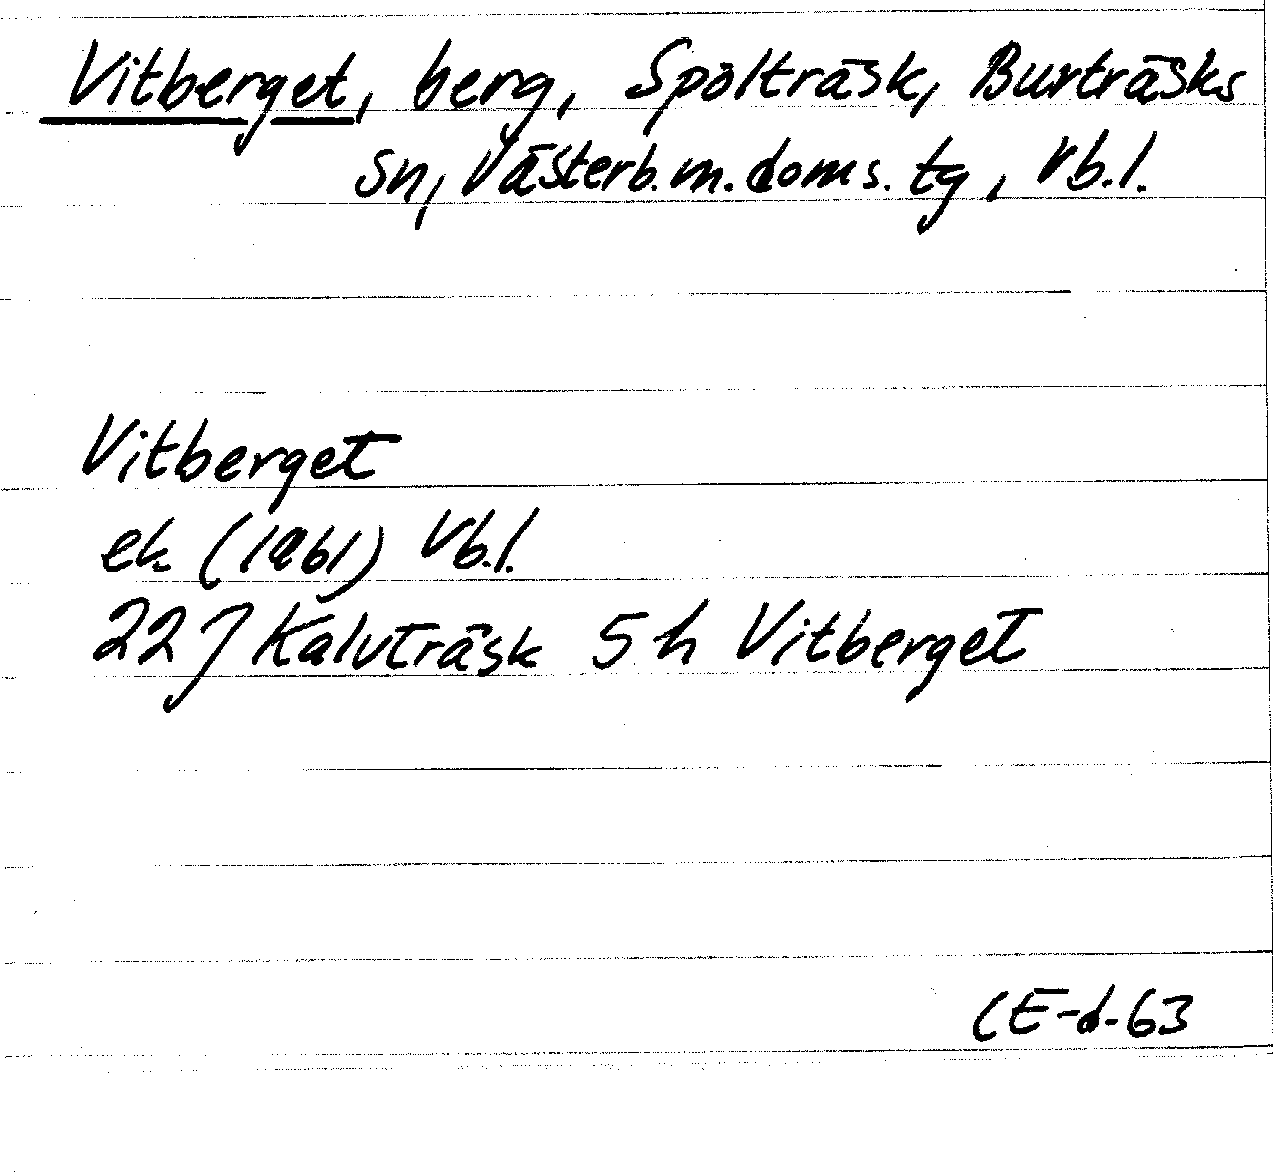 Vitberget, berg, Spölträsk, Burträsks
sn, Västerb.m.doms.tg, Vb.l.
Vitberget
ek (1961) Vb.l.
22 J Kalvträsk 5 h Vitberget
CE-d-63